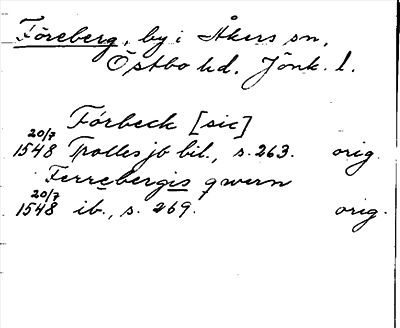 Föreberg, by i Åkers sn,
Östbo hd, Jönk. l.
Förbeck [sic]
20/7
1548 Trolles jb bil., s. 263. orig.
Ferrebergis qwern
20/7
1548 ib., s. 269. orig.